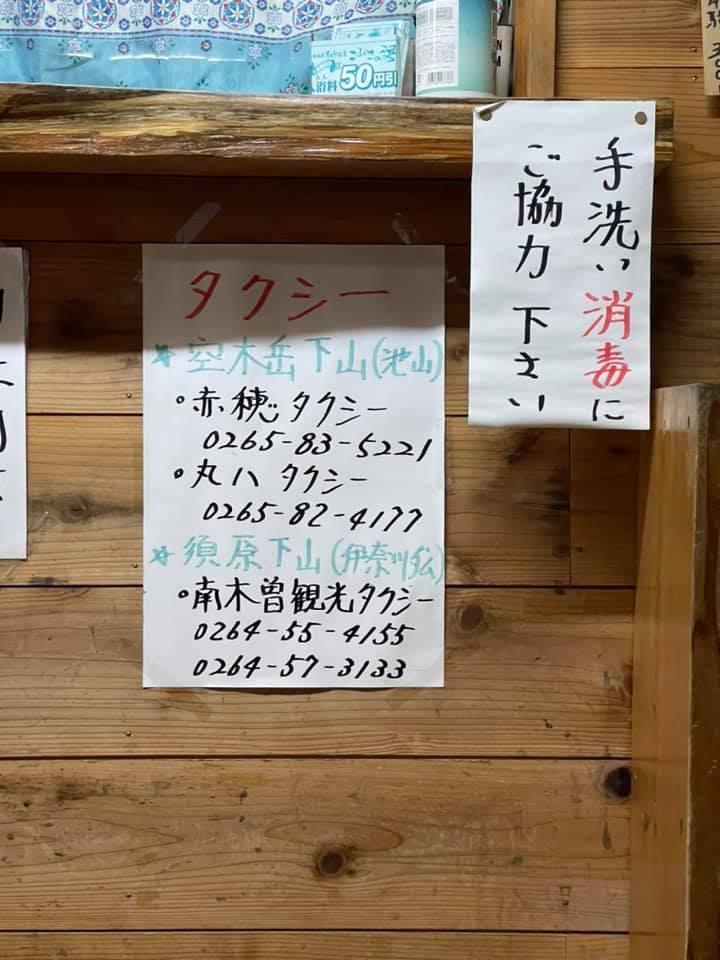 50円引
手洗い消毒に
ご協力 下さい
タクシー
空木岳下山(池山)
赤穂タクシー
0265-83-5221
丸八タクシー
0265-82-4177
須原下山(伊奈川ダム)
南木曽観光タクシー
0264-55-4155
0264-57-3133